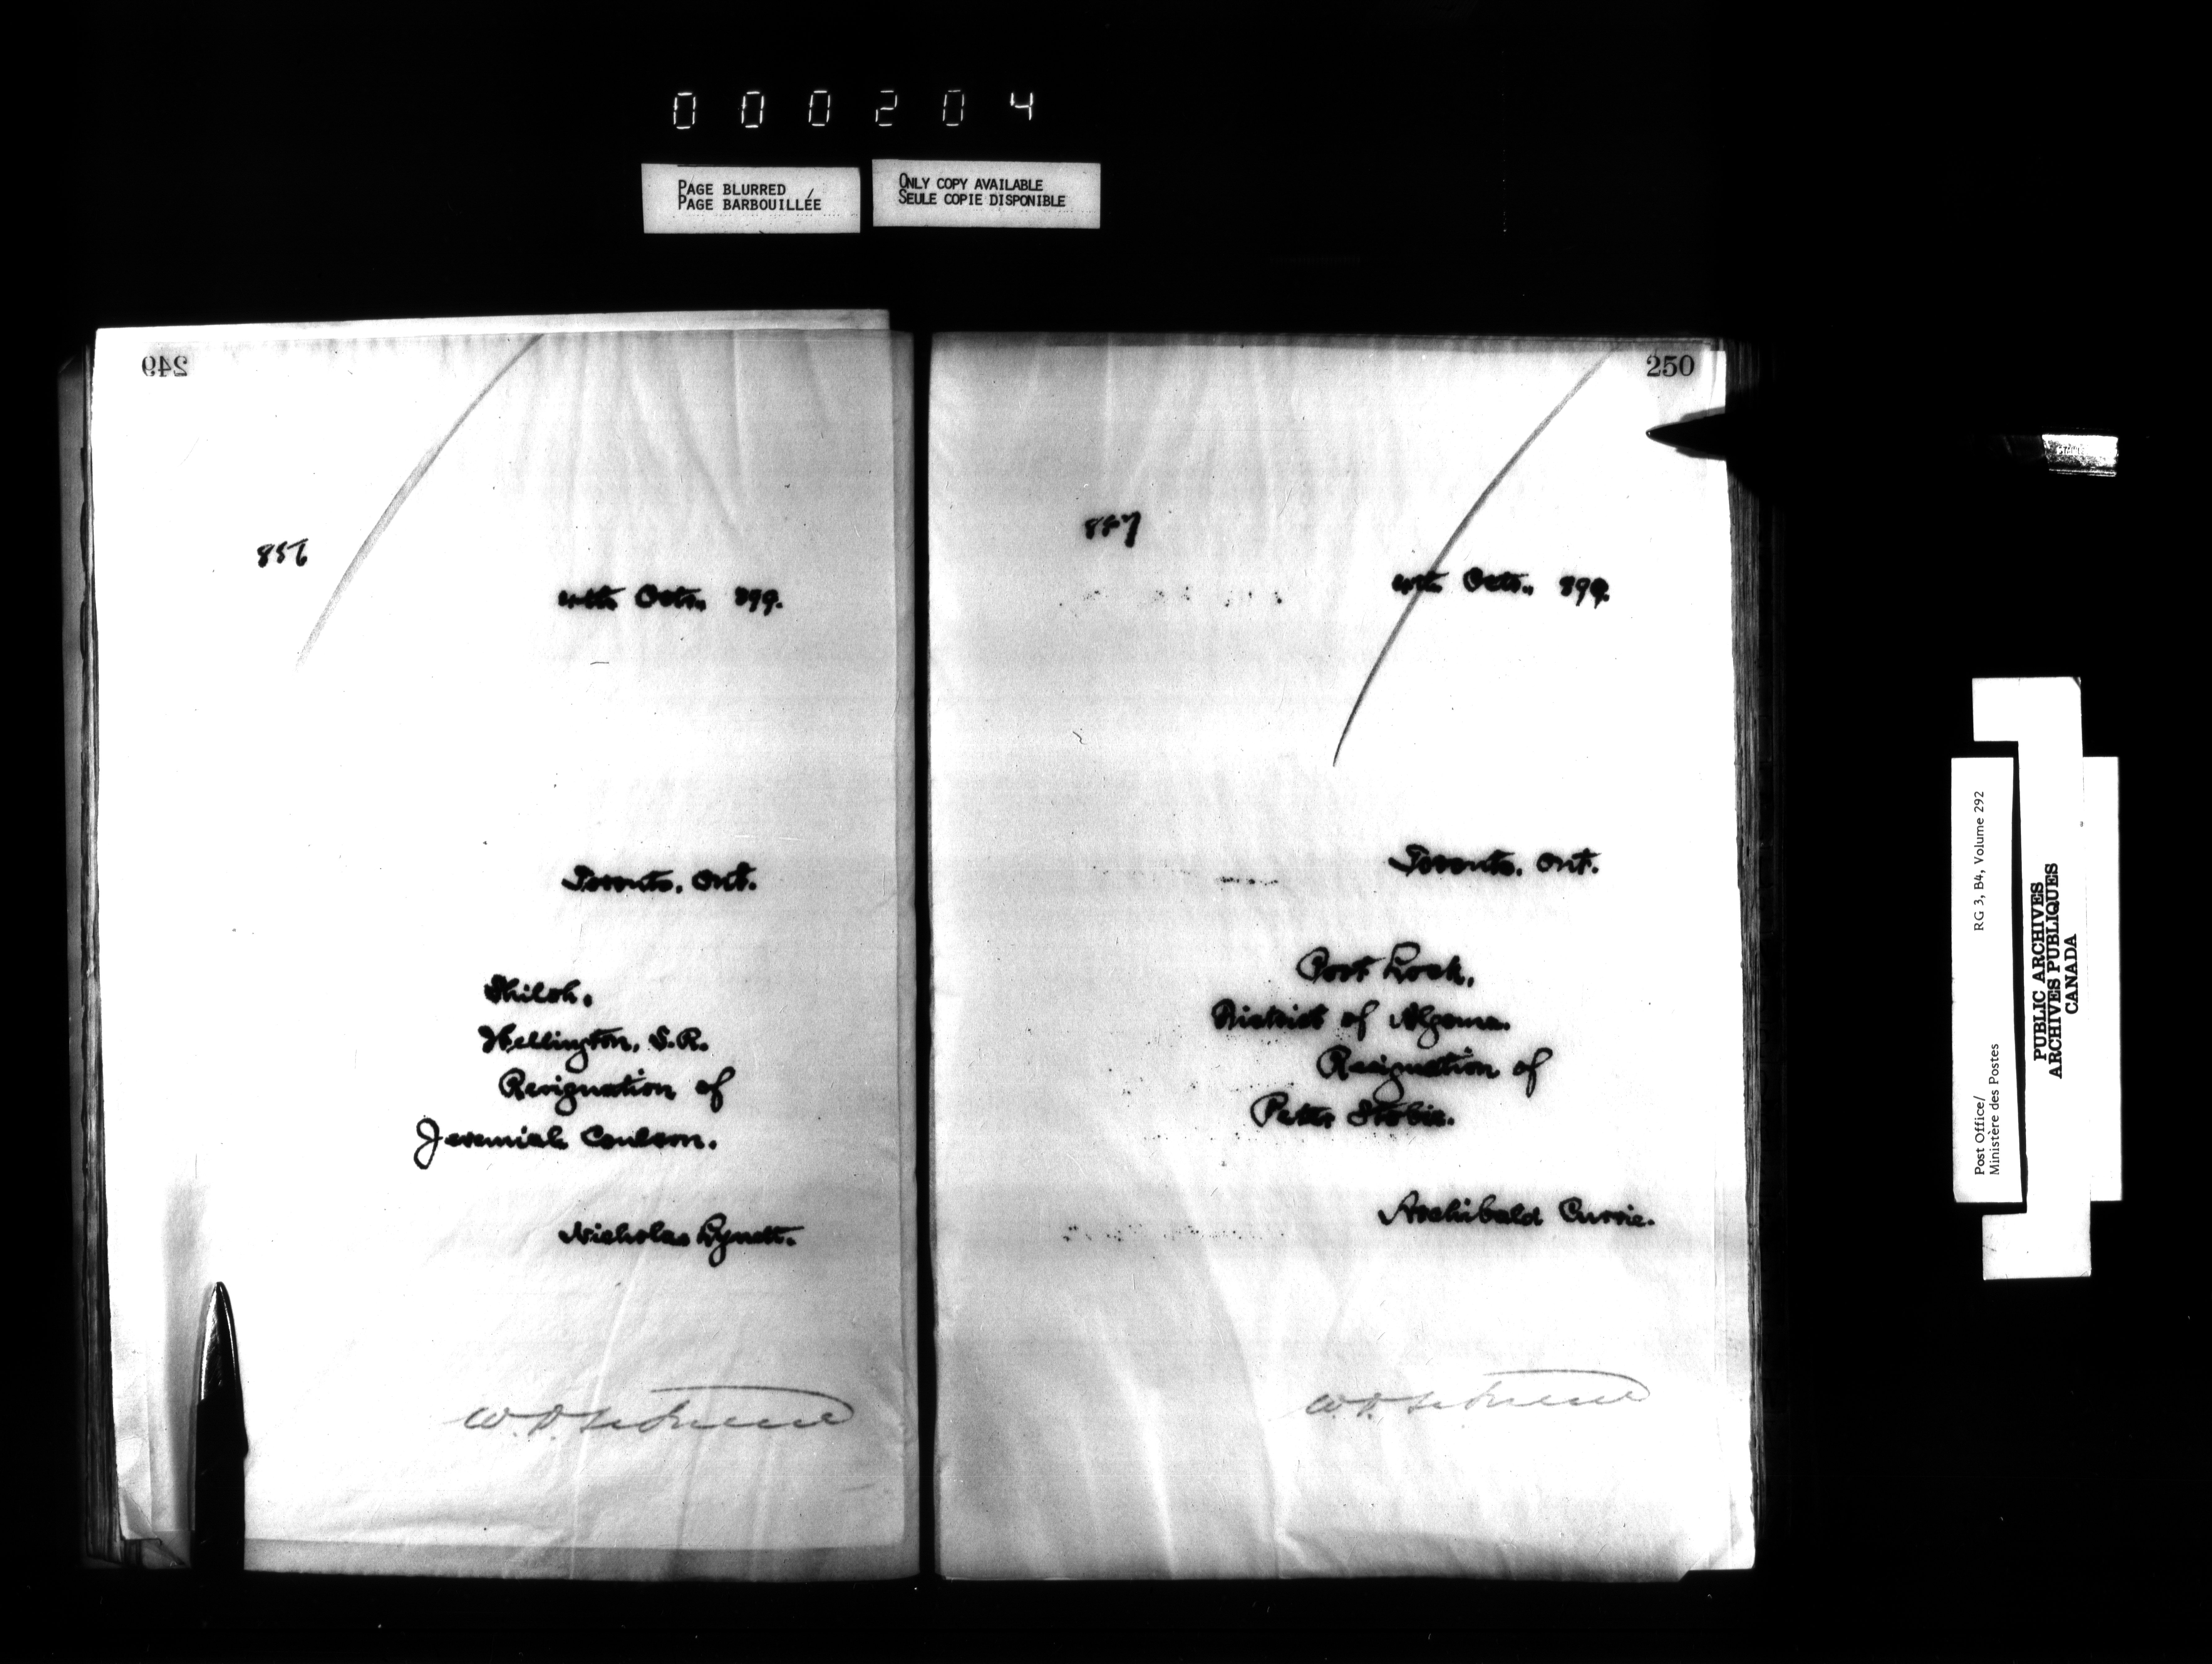 000204
PAGE BLURRED
PAGE BARBOUILLÉE
ONLY COPY AVAILABLE
SEULE COPIE DISPONIBLE
249
856
Octr., 899.
Toronto, Ont.
Shiloh,
Wellington, S.R.
Resignation of
Jeremiah Coulson.
Nicholas Lynett.
250
857
Octr., 899.
Toronto, Ont.
Port Lock,
District of Algoma.
Resignation of
Peter Stobie.
Archibald Currie.
Post Office/ RG 3, B4, Volume 292
Ministère des Postes
PUBLIC ARCHIVES
ARCHIVES PUBLIQUES
CANADA